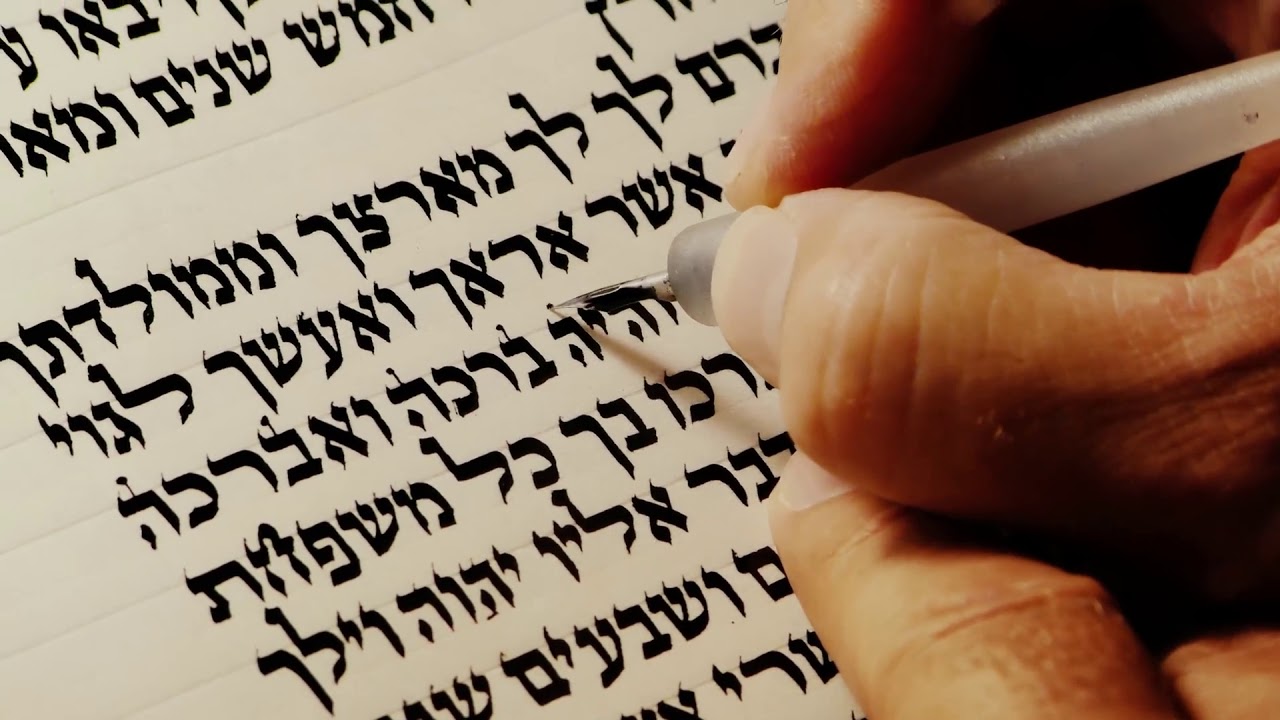 ויבאו
חמש שנים
לך לך מארצך וממולדתך
אשר אראך ואעשך לגוי
והיה ברכה ואברכה
רכו בך כל משפחת
דבר אליו יהוה וילך
ושבעים
שרי